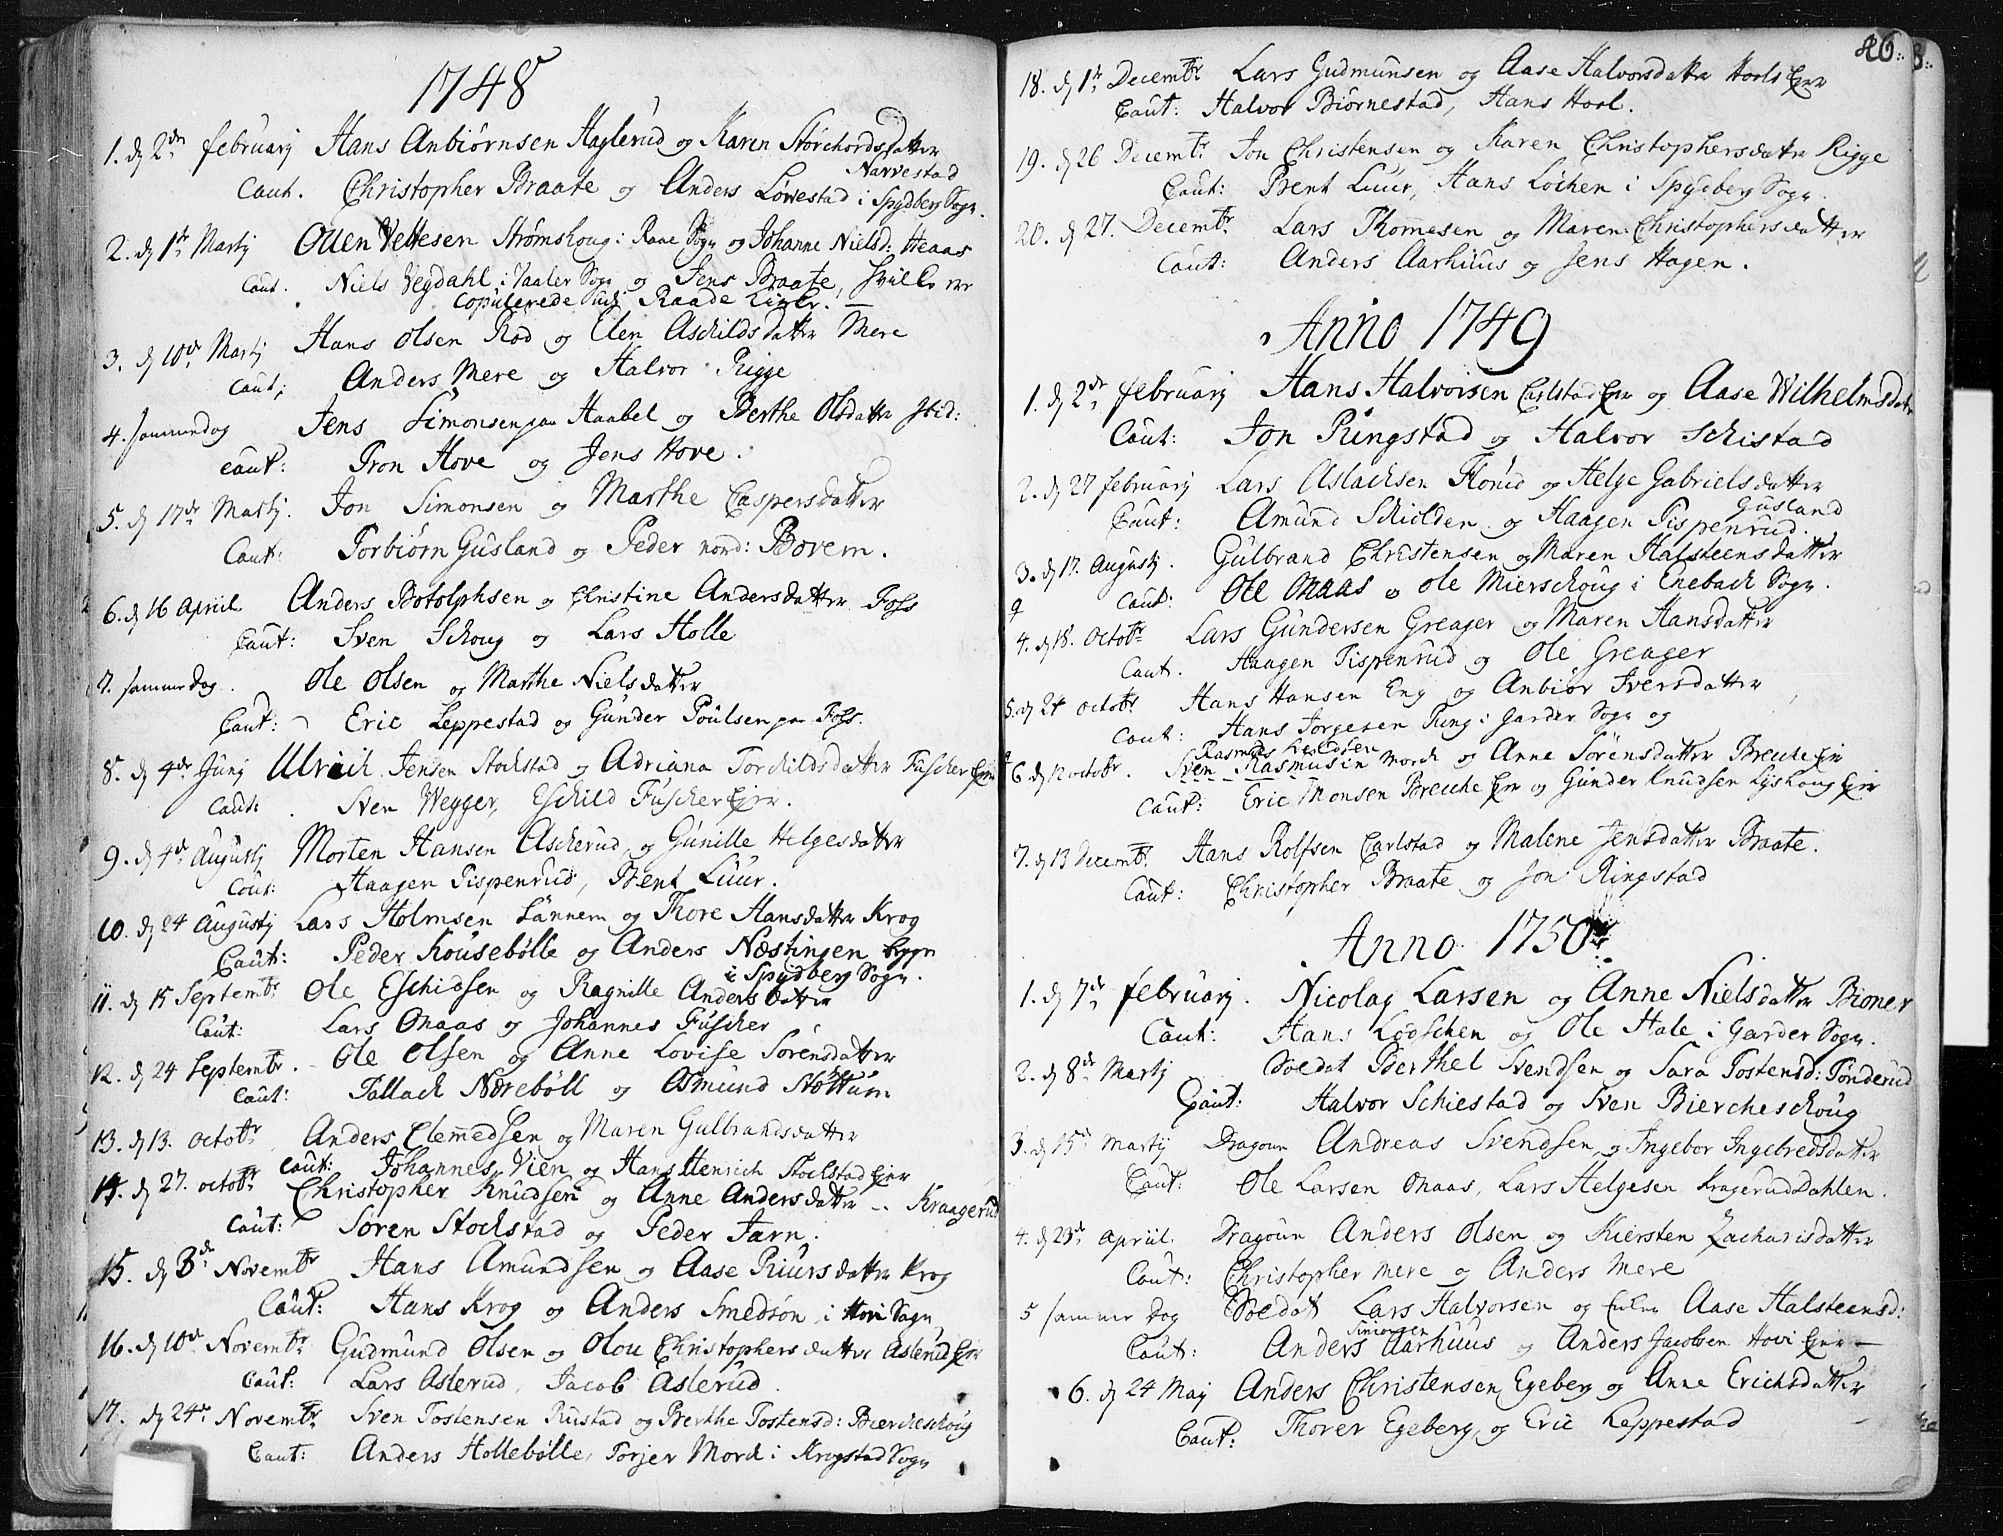 1748
1. d 2den februarij Hans Anbiørnsen Haglerud og Karen Storchordsdatter
Narvestad
Caut. Christopher Braate og Anders Løvestad i Spydberg Sogn.
2. d 1te Martij Ollen Vettesen Strømskoug i Raae Sogn og Johanne Nielsd: Heaas
Caut. Niels Vegdahl i Vaaler Sogn og Jens Braate, hvilke ere
copulerede udj Raade Kirke.
3. d 10de Martij Hans Olsen Rød og Elen Aschildsdatter Mere
Caut: Anders Mere og Halvor Rigge
4. samme dag Jens Simonsen paa Haabel og Berthe Olsdatter ibid:
Caut: Tron Hove og Jens Hove.
5. d 17de Martij. Jon Simonsen og Marthe Caspersdatter
Caut: Torbiørn Gusland og Peder nord: Bovem.
6. d 16 Apriil Anders Botolphsen og Christine Andersdatter Foss
Caut: Sven Schoug og Lars Holle
7. samme dag. Ole Olsen og Marthe Nielsdatter
Caut: Eric Leppestad og Gunder Poulsen paa Foss.
8. d 4de Junj Ulrich Jensen Stochstad og Adriana Torchildsdatter Fuscher Ejer
Caut. Sven Wegger, Eschild Fuscher Ejer.
9. d 4de Augustij Morten Hansen Ascherud og Gunille Helgesdatter
Caut: Haagen Tispenrud, Bent Luur.
10. d 24 Augustij Lars Holmsen Sannem og Thore Hansdatter Krog
Caut: Peder Kousebølle og Anders Næstingen
i Spydberg Sogn.
11. d 15 Septembr Ole Eschidsen og Ragnille Andersdatter
Caut: Lars Maas og Johannes Fuscher
12. d 24 Septembr. Ole Olsen og Anne Lovise Sørensdatter
Caut: Tallach Nærebøll og Amund Støttum
13. d 13. Octobr Anders Clemedsen og Maren Gulbrandsdatter
Caut: Johannes Vien og Hans Henrich Stochstad Ejer
14. d 27. octobr Christopher Knudsen og Anne Andersdatter -- Kraagerud
Caut: Søren Stochstad og Peder Jarn.
15. d 3de Novembr Hans Amundsen og Aase Riursdatter Krog
Caut: Hans Krog og Anders Smedsøn i Hovi Sogn
16. d 10de Novembr Gudmund Olsen og Olou Christophersdatter Aslerud Ejer
Caut: Lars Aslerud, Jacob Aslerud.
17. d 24de Novembr Sven Tostensen Rustad og Berthe Tostensd: Biercheschoug
Caut: Anders Hollebølle, Torjer Mord i Krogstad Sogn
26.
18. d 1te Decembr Lars Gudmunsen og Aase Halvorsdatter Hools Ejer
Caut: Halvor Biørnestad, Hans Hool.
19. d 26 Decembr Jon Christensen og Karen Christophersdatter Rigge
Caut: Brent Luur, Hans Løchen i Spydberg Sogn.
20. d 27. Decembr Lars Thommesen og Maren Christophersdatter
Caut: Anders Aarhuus og Jens Hagen.
Anno 1749
1. d 2den februarij Hans Halvorsen Carlstad Ejer og Aase Wilhelmsdatter
Caut: Jon Ringstad og Halvor Schistad
2. d 27 februarij Lars Aslachsen Florud og Helge Gabrielsdatter
Gusland
Caut: Amund Schiolden og Haagen Tispenrud.
3. d 17. Augustj. Gulbrand Christensen og Maren Halsteensdatter
Caut: Ole Maas og Ole Mierschoug i Enebach Sogn.
4. d 18. Octobr Lars Gundersen Greager og Maren Hansdatter
Caut. Haagen Tispenrud og Ole Greager
5. d 24 octobr Hans Hansen Eng og Anbior Iversdatter
Caut: Hans Jørgesen Tung i Garder Sogn og
Rasmus Svendsen
6. d 12 octobr. Sven Rasmusen Morch og Anne Sørensdatter Breche Ejer
Caut: Eric Monsen Breche Ejer og Gunder Knudsen Lyskoug Ejer
7. d 13 Decembr. Hans Rolfsen Carlstad og Malene Jensdatter Braate.
Caut: Christopher Braate og Jon Ringstad
Anno 1750
1. d 7de februarij. Nicolay Larsen og Anne Nielsdatter Bioner
Caut: Hans Lodschen og Ole Hale i Garder Sogn.
2. d 8de Martij Soldat Berthel Svendsen og Sara Tostensd: Tonderud
Caut: Halvor Schiestad og Sven Biercheschoug
3. d 15de Martij Dragoun Andreas Svendsen og Ingebor Ingebredsdatter
Caut: Ole Larsen Maas, Lars Helgesen Kragerud Dahlen.
4. d 23de Apriil. Dragoun Anders Olsen og Kiersten Zacharisdatter
Caut: Christopher Mere og Anders Mere
5 samme Dag Soldat Lars Halvorsen og Aase Halsteensd:
Simonsen
Caut: Anders Aarhuus og Anders Jacobsen Hovi Ejer
6. d 24 Maj Anders Christensen Egeberg og Anne Erichsdatter
Caut: Thorer Egeberg, og Eric Leppestad